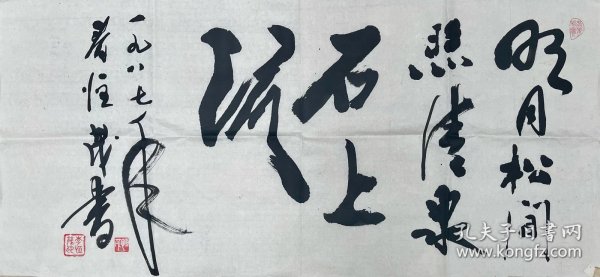 明月松间
照清泉
石上
流
一九八七年
春恒茂书
孔夫子旧书网
www.kongfz.com